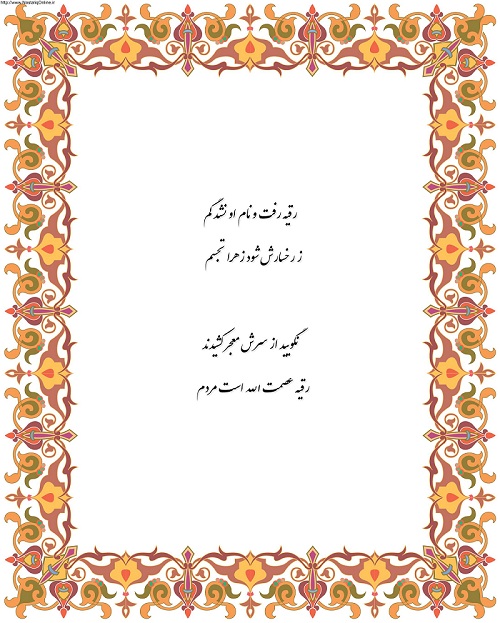 http://www.NastaliqOnline.ir
رقیه رفت و نام او نشد گم
ز رخسارش شود زهرا تجسم
نگویید از سرش معجر کشیدند
رقیه عصمت الله است مردم